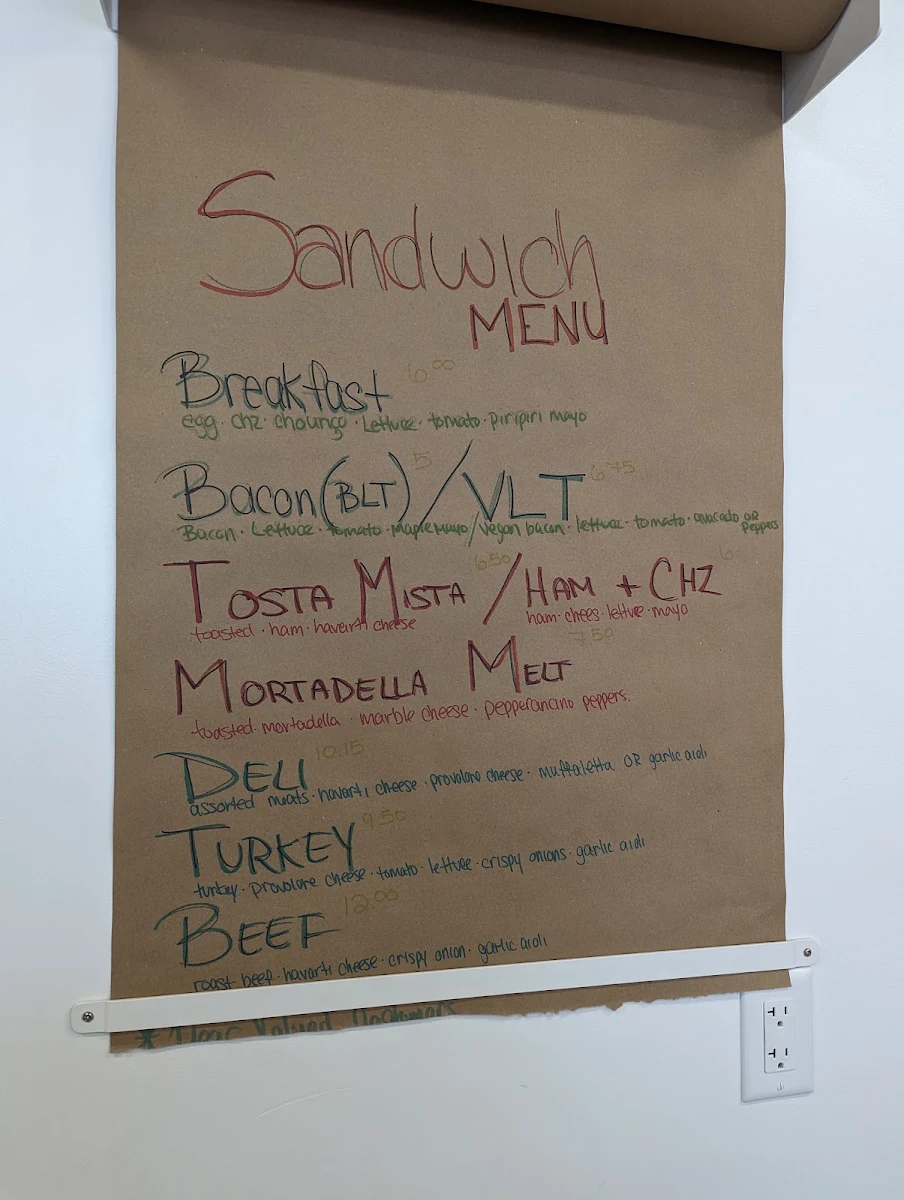 Sandwich
MENU
Breakfast 6.00
egg · chz · chouriço · Lettuce · tomato · piripiri mayo
Bacon (BLT) 5 / VLT 6.75
Bacon · Lettuce · tomato · Maple Mayo / Vegan bacon · lettuce · tomato · avacado OR Peppers
TOSTA MISTA 6.50 / HAM + CHZ 6
toasted · ham · havarti cheese ham · chees · lettuce · mayo
MORTADELLA MELT 7.50
toasted · mortadella · marble cheese · pepperoncino peppers.
DELI 10.15
assorted meats · havarti cheese · provolone cheese · muffaletta OR garlic aioli
TURKEY 9.50
turkey · provolone cheese · tomato · lettuce · crispy onions · garlic aioli
BEEF 12.00
roast beef · havarti cheese · crispy onion · garlic aioli
* Dear Valued